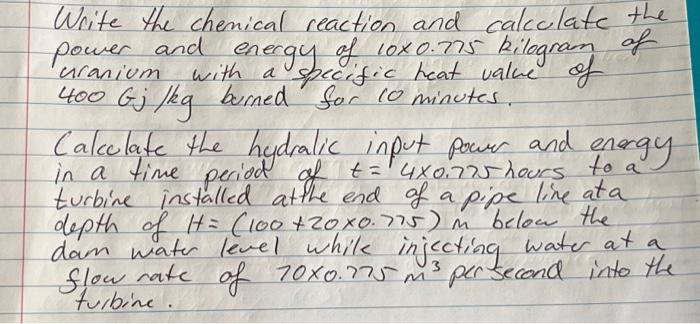 Write the chemical reaction and calculate the
power and energy of 10x0.775 kilogram of
uranium with a specific heat value of
400 Gj/kg burned for 10 minutes.
Calculate the hydralic input power and energy
in a time period of t= 4x0.775 hours to a
turbine installed at the end of a pipe line at a
depth of H= (100+20x0.775) m below the
dam water level while injecting water at a
flow rate of 70x0.775 m³ per second into the
turbine.